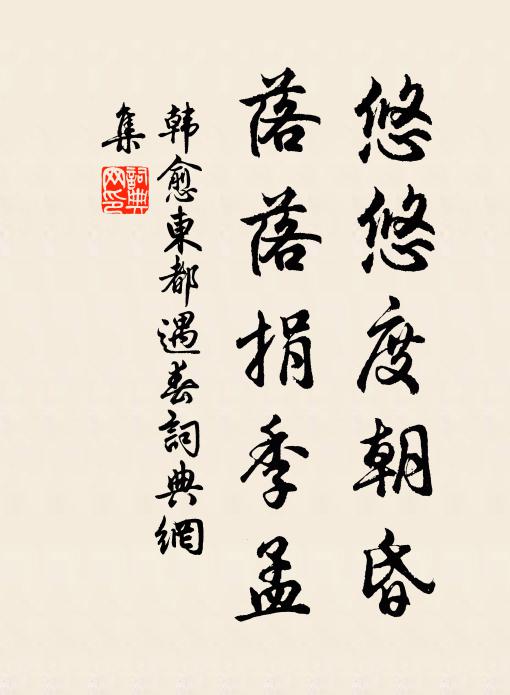 悠悠度朝昏
落落捐季孟
韩愈東都遇春詞典網
集
詞典
网印